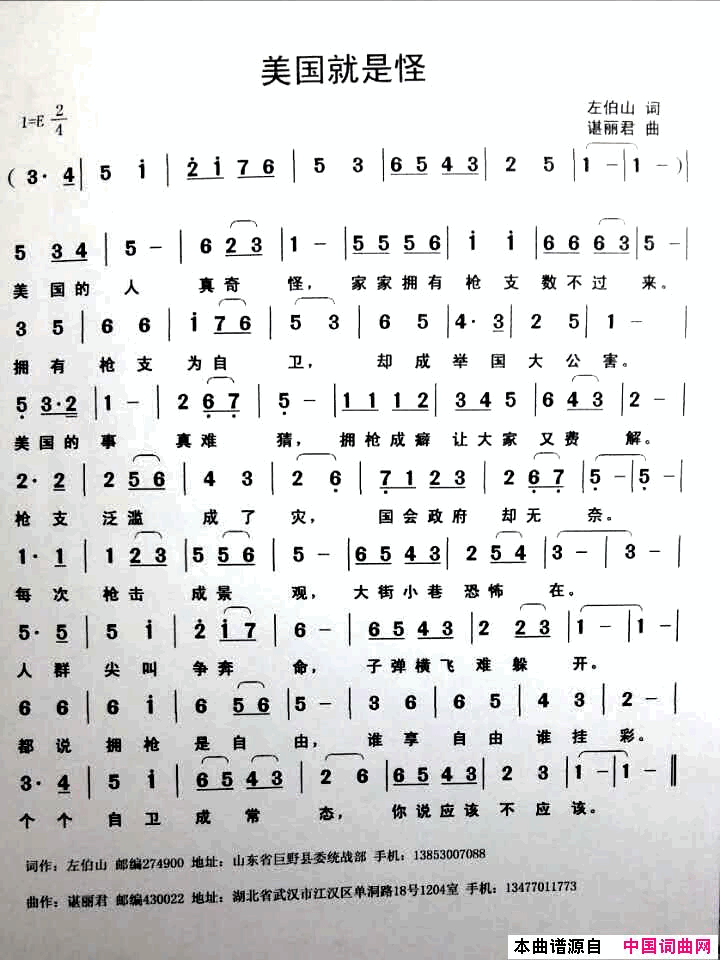 美国就是怪
1=E 2/4
左伯山 词
谌丽君 曲
( 3· 4 | 5 i | 2 i 7 6 | 5 3 | 6 5 4 3 | 2 5 | 1 – | 1 – ) |
5 3 4 | 5 – | 6 2 3 | 1 – | 5 5 5 6 | i i | 6 6 6 3 | 5 – |
美国的人 真奇怪，家家拥有枪支数不过来。
3 5 | 6 6 | i 7 6 | 5 3 | 6 5 | 4· 3 | 2 5 | 1 – |
拥有枪支为自卫，却成举国大公害。
5 3·2 | 1 – | 2 6 7 | 5 – | 1 1 1 2 | 3 4 5 | 6 4 3 | 2 – |
美国的事 真难猜，拥枪成癖让大家又费解。
2· 2 | 2 5 6 | 4 3 | 2 6 | 7 1 2 3 | 2 6 7 | 5 – | 5 – |
枪支泛滥成了灾，国会政府却无奈。
1· 1 | 1 2 3 | 5 5 6 | 5 – | 6 5 4 3 | 2 5 4 | 3 – | 3 – |
每次枪击成景观，大街小巷恐怖在。
5· 5 | 5 i | 2 i 7 | 6 – | 6 5 4 3 | 2 2 3 | 1 – | 1 – |
人群尖叫争奔命，子弹横飞难躲开。
6 6 | 6 i | 6 5 6 | 5 – | 3 6 | 6 5 | 4 3 | 2 – |
都说拥枪是自由，谁享自由谁挂彩。
3· 4 | 5 i | 6 5 4 3 | 2 6 | 6 5 4 3 | 2 2 3 | 1 – | 1 – ‖
个个自卫成常态，你说应该不应该。
词作：左伯山 邮编274900 地址：山东省巨野县委统战部 手机：13853007088
曲作：谌丽君 邮编430022 地址：湖北省武汉市江汉区单洞路18号1204室 手机：13477011773
本曲谱源自 中国词曲网